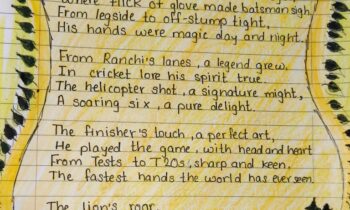 Where flick of glove made batsman sigh
From legside to off-stump tight,
His hands were magic day and night.
From Ranchi's lanes, a legend grew,
In cricket lore his spirit true.
The helicopter shot, a signature might,
A soaring six, a pure delight.
The finisher's touch, a perfect art,
He played the game, with head and heart
From Tests to T20s, sharp and keen,
The fastest hands the world has ever seen.
The lion's roar